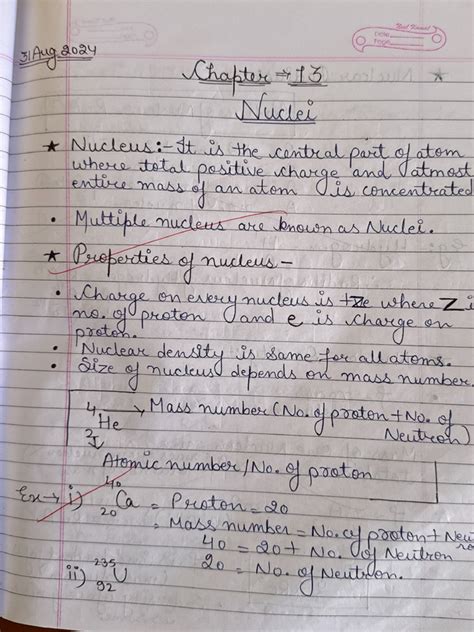 31 Aug 2024
Chapter → 13
Nuclei
★ Nucleus:- It is the central part of atom
where total positive charge and atmost
entire mass of an atom is concentrated
• Multiple nucleus are known as Nuclei.
★ Properties of nucleus –
• Charge on every nucleus is +Ze where Z i
no. of proton and e is charge on
proton.
• Nuclear density is same for all atoms.
• Size of nucleus depends on mass number
⁴₂He → Mass number (No. of proton + No. of
Neutron)
Atomic number/No. of proton
Ex → i) ⁴⁰₂₀Ca = Proton = 20
= Mass number = No. of proton + Neu
40 = 20 + No. of Neutron
20 = No. of Neutron.
ii) ²³⁵₉₂U